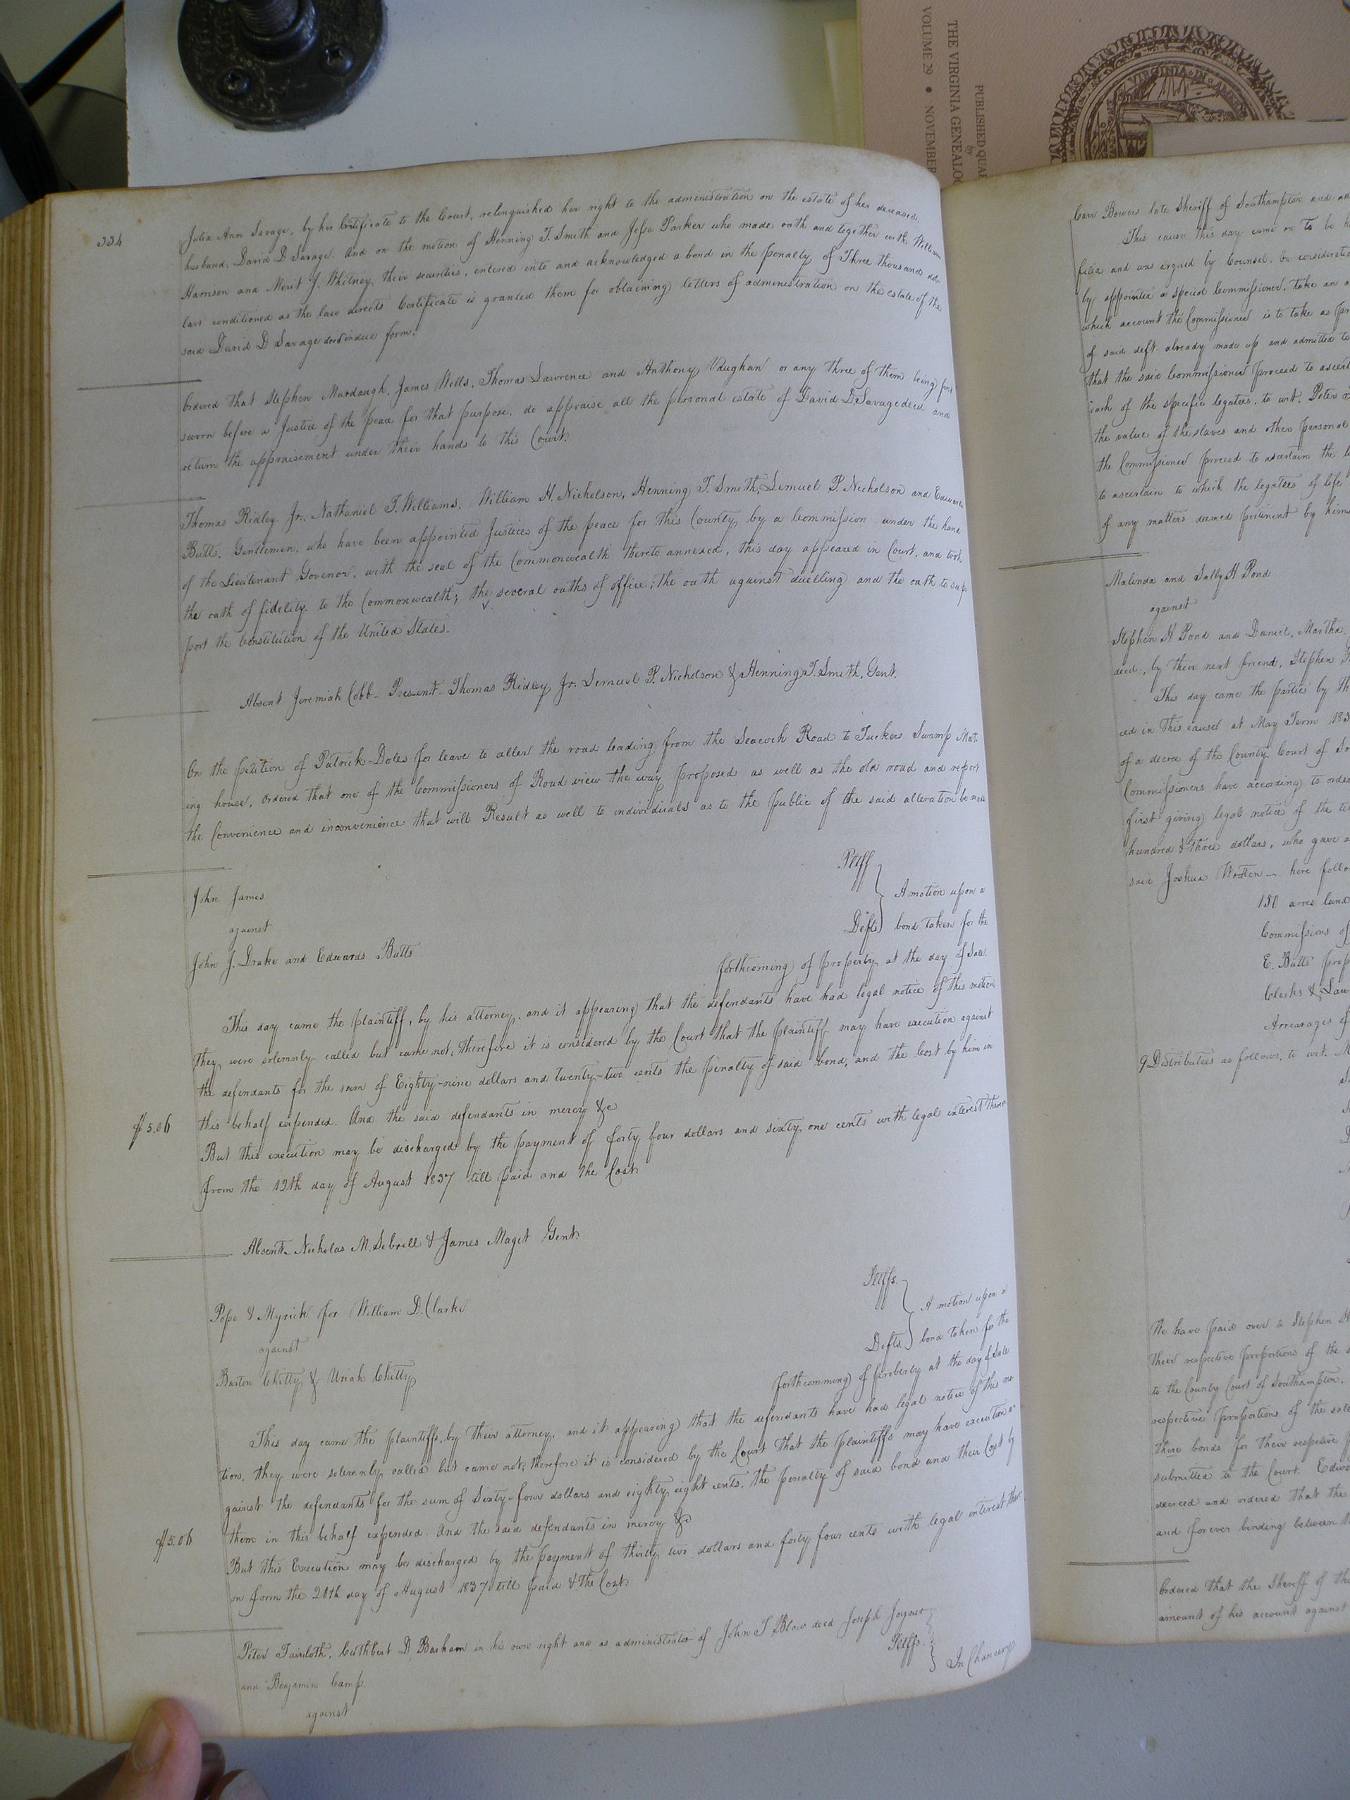 PUBLISHED QUA
by
THE VIRGINIA GENEALOG
VOLUME 29 • NOVEMBER
VIRGINIA IN AMER
334
Julia Ann Savage, by her Certificate to the Court, relinquished her right to the administration on the estate of her deceased
husband, David D Savage. And on the motion of Henning T. Smith and Jesse Parker who made oath and together with William
Harrison and Merit J. Whitney, their securities, entered into and acknowledged a bond in the penalty of Three thousand dol-
lars conditioned as the law directs Certificate is granted them for obtaining letters of administration on the estate of the
said David D Savage decd in due form.
Ordered that Stephen Murdaugh, James Wells, Thomas Lawrence and Anthony Vaughan or any three of them being first
sworn before a Justice of the peace for that purpose, do appraise all the personal estate of David D Savage decd and
return the appraisement under their hands to this Court
Thomas Ridley Jr. Nathaniel T. Williams, William H. Nicholson, Henning T. Smith, Lemuel P. Nicholson and Edward
Butts, Gentlemen, who have been appointed Justices of the peace for this County by a Commission under the hand
of the Lieutenant Govenor, with the seal of the Commonwealth thereto annexed, this day appeared in Court, and took
the oath of fidelity to the Commonwealth; the several oaths of office; the oath against duelling and the oath to sup
port the Constitution of the United States.
Absent Jeremiah Cobb- Present Thomas Ridley Jr. Lemuel P. Nicholson & Henning T. Smith, Gent.
On the petition of Patrick Doles for leave to alter the road leading from the Seacock Road to Tuckers Swamp Meet-
ing house, Ordered that one of the Commissioners of Road view the way proposed as well as the old road and report
the Convenience and inconvenience that will Result as well to individuals as to the public if the said alteration be made
John James Pltff
against A motion upon a
John J. Drake and Edwards Butts Defts bond taken for the
forthcoming of property at the day of Sale
This day came the plaintiff, by his attorney, and it appearing that the defendants have had legal notice of this motion
they were solemnly called but came not, therefore it is considered by the Court that the plaintiff may have execution against
the defendants for the sum of Eighty-nine dollars and twenty-two cents the penalty of said bond, and the Cost by him in
$5.06 this behalf expended. And the said defendants in mercy &c
But this execution may be discharged by the payment of forty four dollars and sixty one cents with legal interest thereon
from the 19th day of August 1837 till paid and the Cost
Absent Nicholas M. Sebrell & James Maget Gent
Pope & Myrick for William D. Clarke Pltffs.
against A motion upon a
Barton Chitty & Uriah Chitty Defts bond taken for the
forthcomming of property at the day of Sale
This day came the plaintiffs, by their attorney, and it appearing that the defendants have had legal notice of this mo
tion, they were solemnly called but came not, therefore it is considered by the Court that the plaintiffs may have execution a
gainst the defendants for the sum of Sixty-four dollars and eighty eight cents, the penalty of said bond and their Cost by
$5.06 them in this behalf expended. And the said defendants in mercy &c
But this Execution may be discharged by the payment of thirty two dollars and forty four cents with legal interest there
on from the 28th day of August 1837 till paid & the Cost
Peter Faircloth, Cuthbert D. Barham in his own right and as administrator of John T. Blow decd Joseph Joyner
and Benjamin Camp Pltffs. In Chancery
against
Carr Bowers late Sheriff of Southampton and
This cause this day came on to be h
filed and was argued by Counsel, on consideratio
by appointed a special Commissioner, take an
which account the Commissioner is to take as
of said deft. already made up and admitted to
that the said Commissioner proceed to ascert
each of the specific legatees, to wit, Peter
the value of the slaves and other personal
the Commissioner proceed to ascertain the
to ascertain to which the legatees of life
of any matters deemed pertinent by him
Malinda and Sally H Pond
against
Stephen H Pond and Daniel, Martha
decd, by their next friend, Stephen
This day came the parties by th
ed in this cause at May Term 183
of a decree of the County Court of So
Commissioners have according to order
first giving legal notice of the
hundred & three dollars, who gave
said Joshua Wooten - here follow
180 acres land
Commissions of
E. Butts prop
Clerks & Law
Arrearages of
9 Distributees as follows, to wit,
We have paid over to Stephen
their respective proportions of the
to the County Court of Southampton,
respective proportions of the sale
their bonds for their respective
submitted to the Court. Edw
decreed and ordered that the
and forever binding between
Ordered that the Sheriff of th
amount of his account against